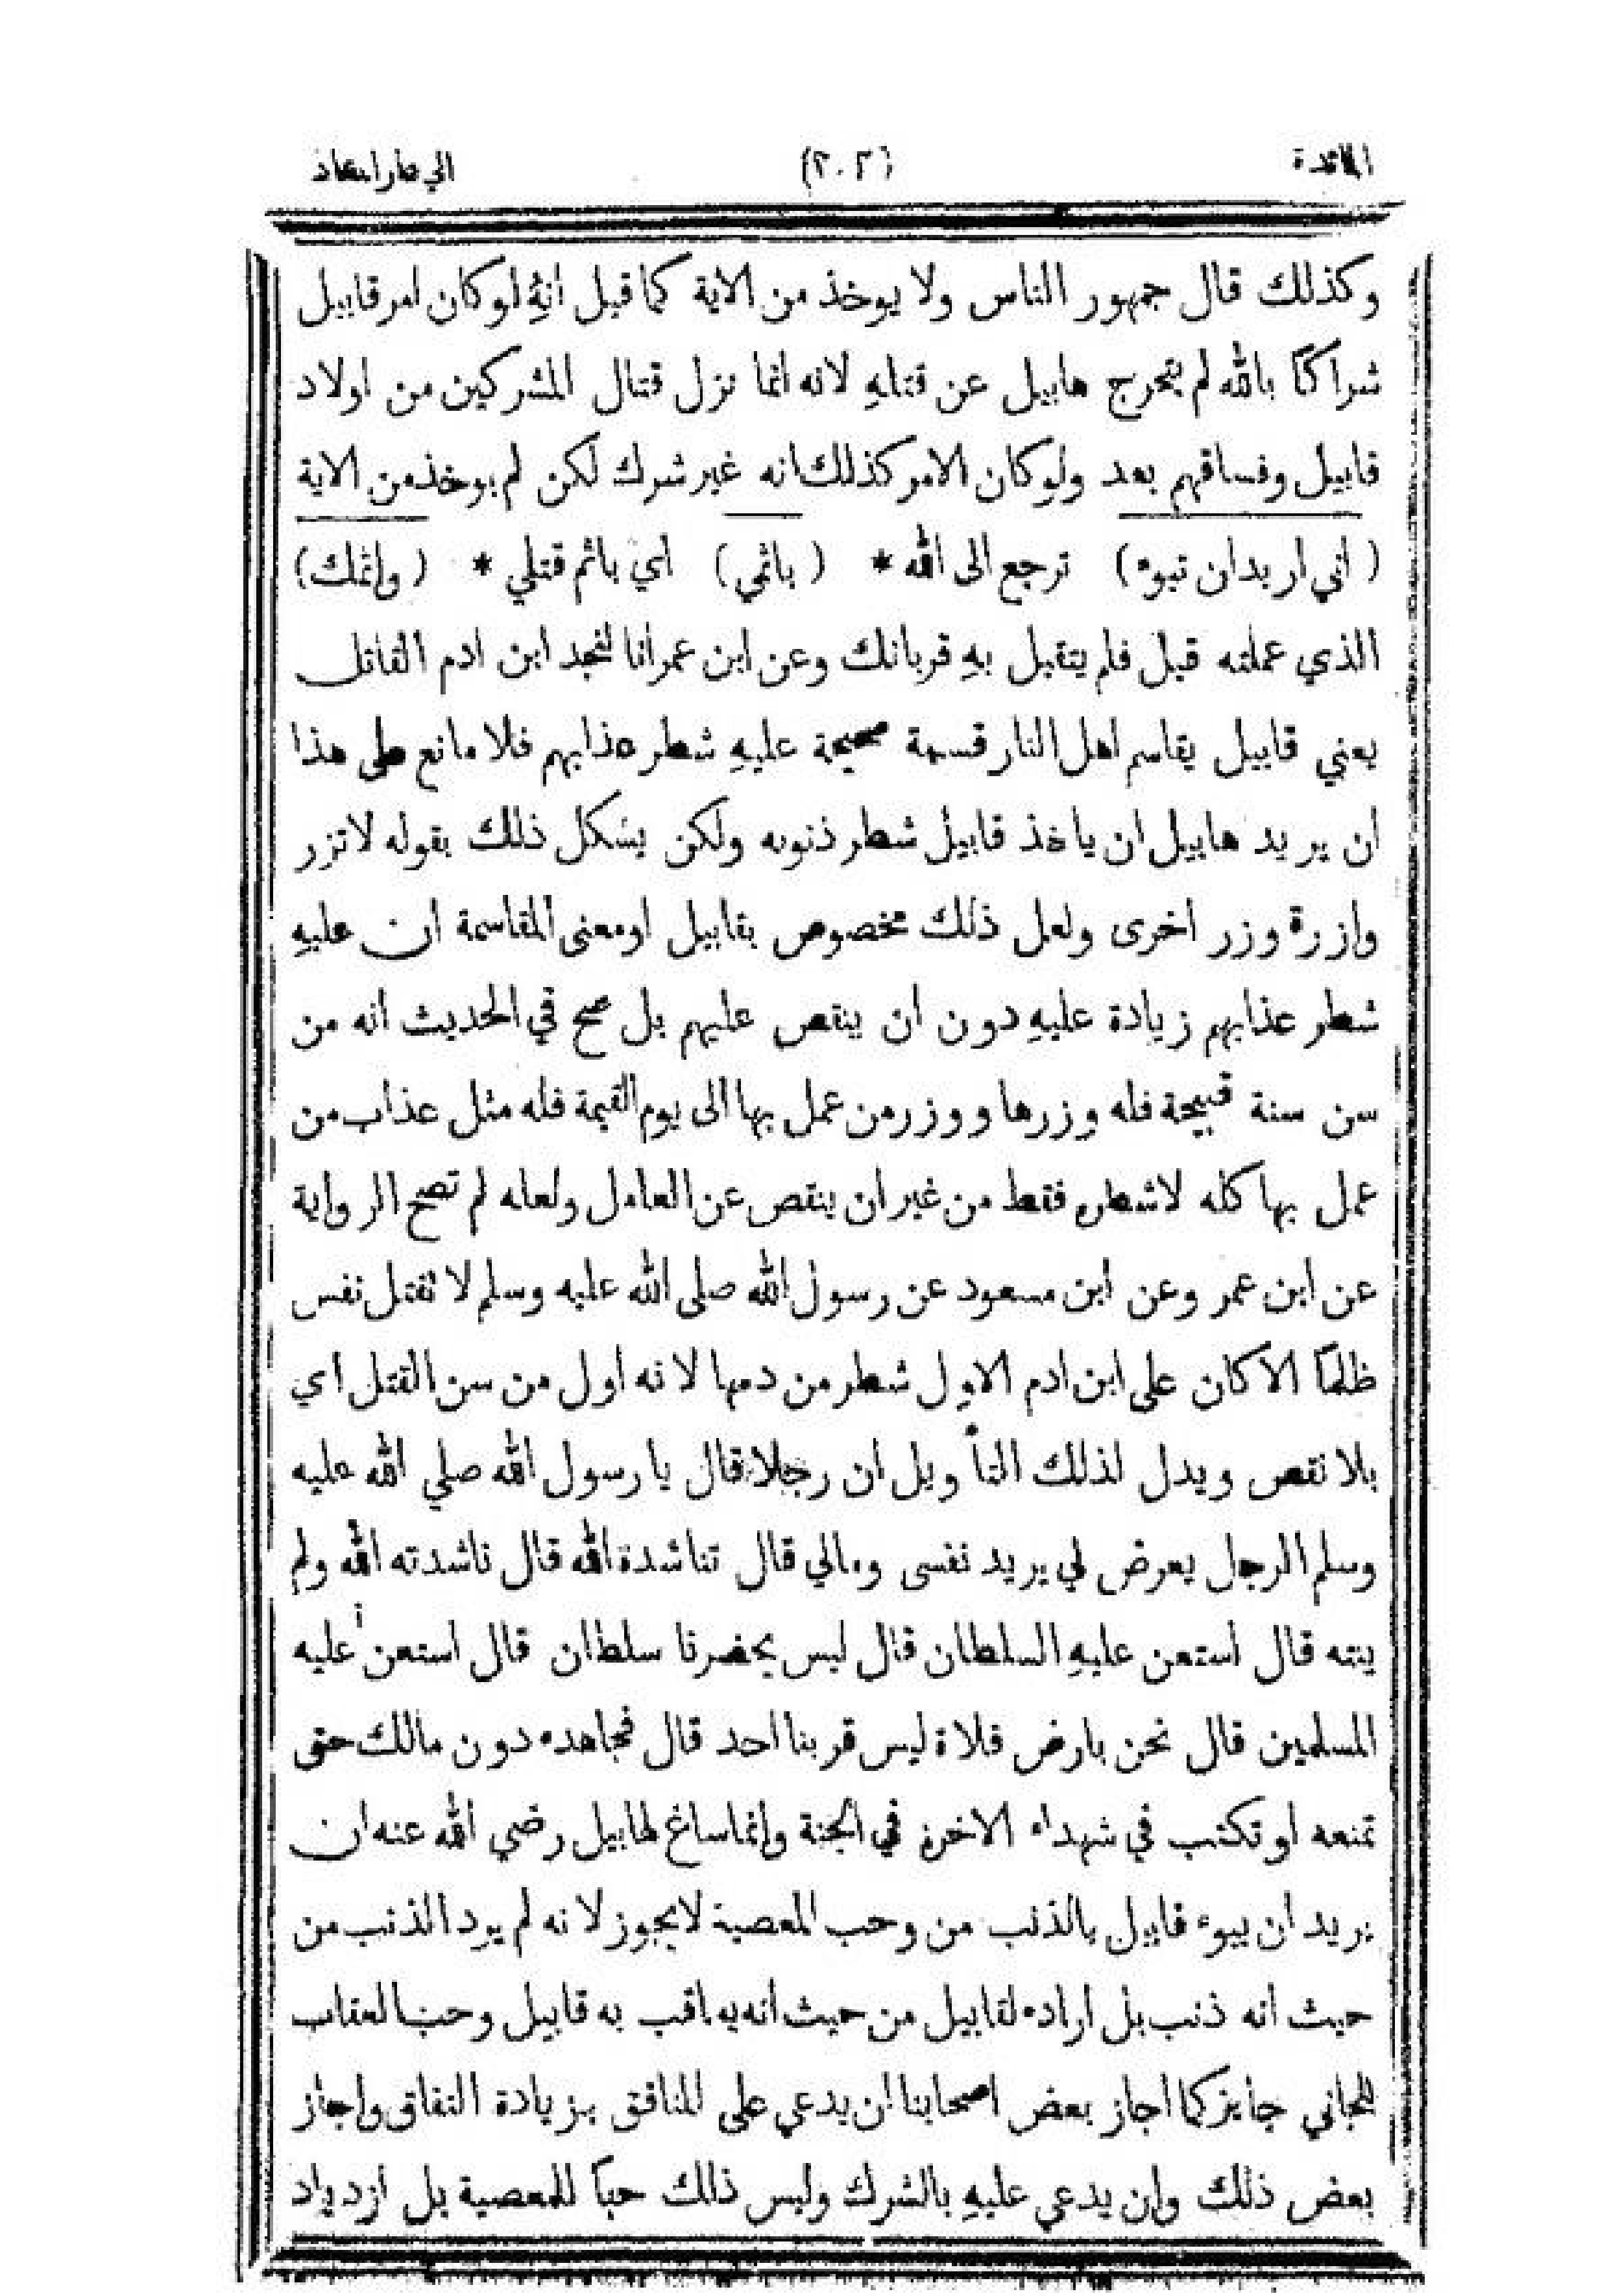 المائدة (٢٠٢) الي دار المعاد
وكذلك قال جمهور الناس ولا يوخذ من الاية كما قيل انه لو كان امر قابيل
شراكا بالله لم يتحرج هابيل عن قتله لانه انما نزل قتال المشركين من اولاد
قابيل وفساقهم بعد ولو كان الامر كذلك انه غير شرك لكن لم يوخذ من الاية
( اني اريد ان تبوء ) ترجع الى الله * ( باثمي ) اي باثم قتلي * ( واثمك )
الذي عملته قبل فلم يتقبل به قربانك وعن ابن عمر انا لنجد ابن ادم القاتل
يعني قابيل يقاسم اهل النار قسمة صحيحة عليه شطر عذابهم فلا مانع على هذا
ان يريد هابيل ان ياخذ قابيل شطر ذنوبه ولكن يشكل ذلك بقوله لا تزر
وازرة وزر اخرى ولعل ذلك مخصوص بقابيل او معنى المقاسمة ان عليه
شطر عذابهم زيادة عليه دون ان ينقص عليهم بل صح في الحديث انه من
سن سنة قبيحة فله وزرها ووزر من عمل بها الى يوم القيمة فله مثل عذاب من
عمل بها كله لا شطره فقط من غير ان ينقص عن العامل ولعله لم تصح الرواية
عن ابن عمر وعن ابن مسعود عن رسول الله صلى الله عليه وسلم لا تقتل نفس
ظلما الا كان على ابن ادم الاول شطر من دمها لانه اول من سن القتل اي
بلا نقص ويدل لذلك التأويل ان رجلا قال يا رسول الله صلي الله عليه
وسلم الرجل يعرض لي يريد نفسى ومالي قال تناشدة الله قال ناشدته الله ولم
ينته قال استعن عليه السلطان قال ليس يحضرنا سلطان قال استعن عليه
المسلمين قال نحن بارض فلاة ليس قربنا احد قال فجاهده دون مالك حتى
تمنعه او تكتب في شهداء الاخرة في الجنة وانما ساغ لهابيل رضي الله عنه ان
يريد ان يبوء قابيل بالذنب من وحب المعصية لا يجوز لانه لم يرد الذنب من
حيث انه ذنب بل اراده لقابيل من حيث انه به قابيل وحب العقاب
للجاني جايز كما اجاز بعض اصحابنا ان يدعي على المنافق بزيادة النفاق واجاز
بعض ذلك وان يدعي عليه بالشرك وليس ذلك حبا للمعصية بل ازدياد